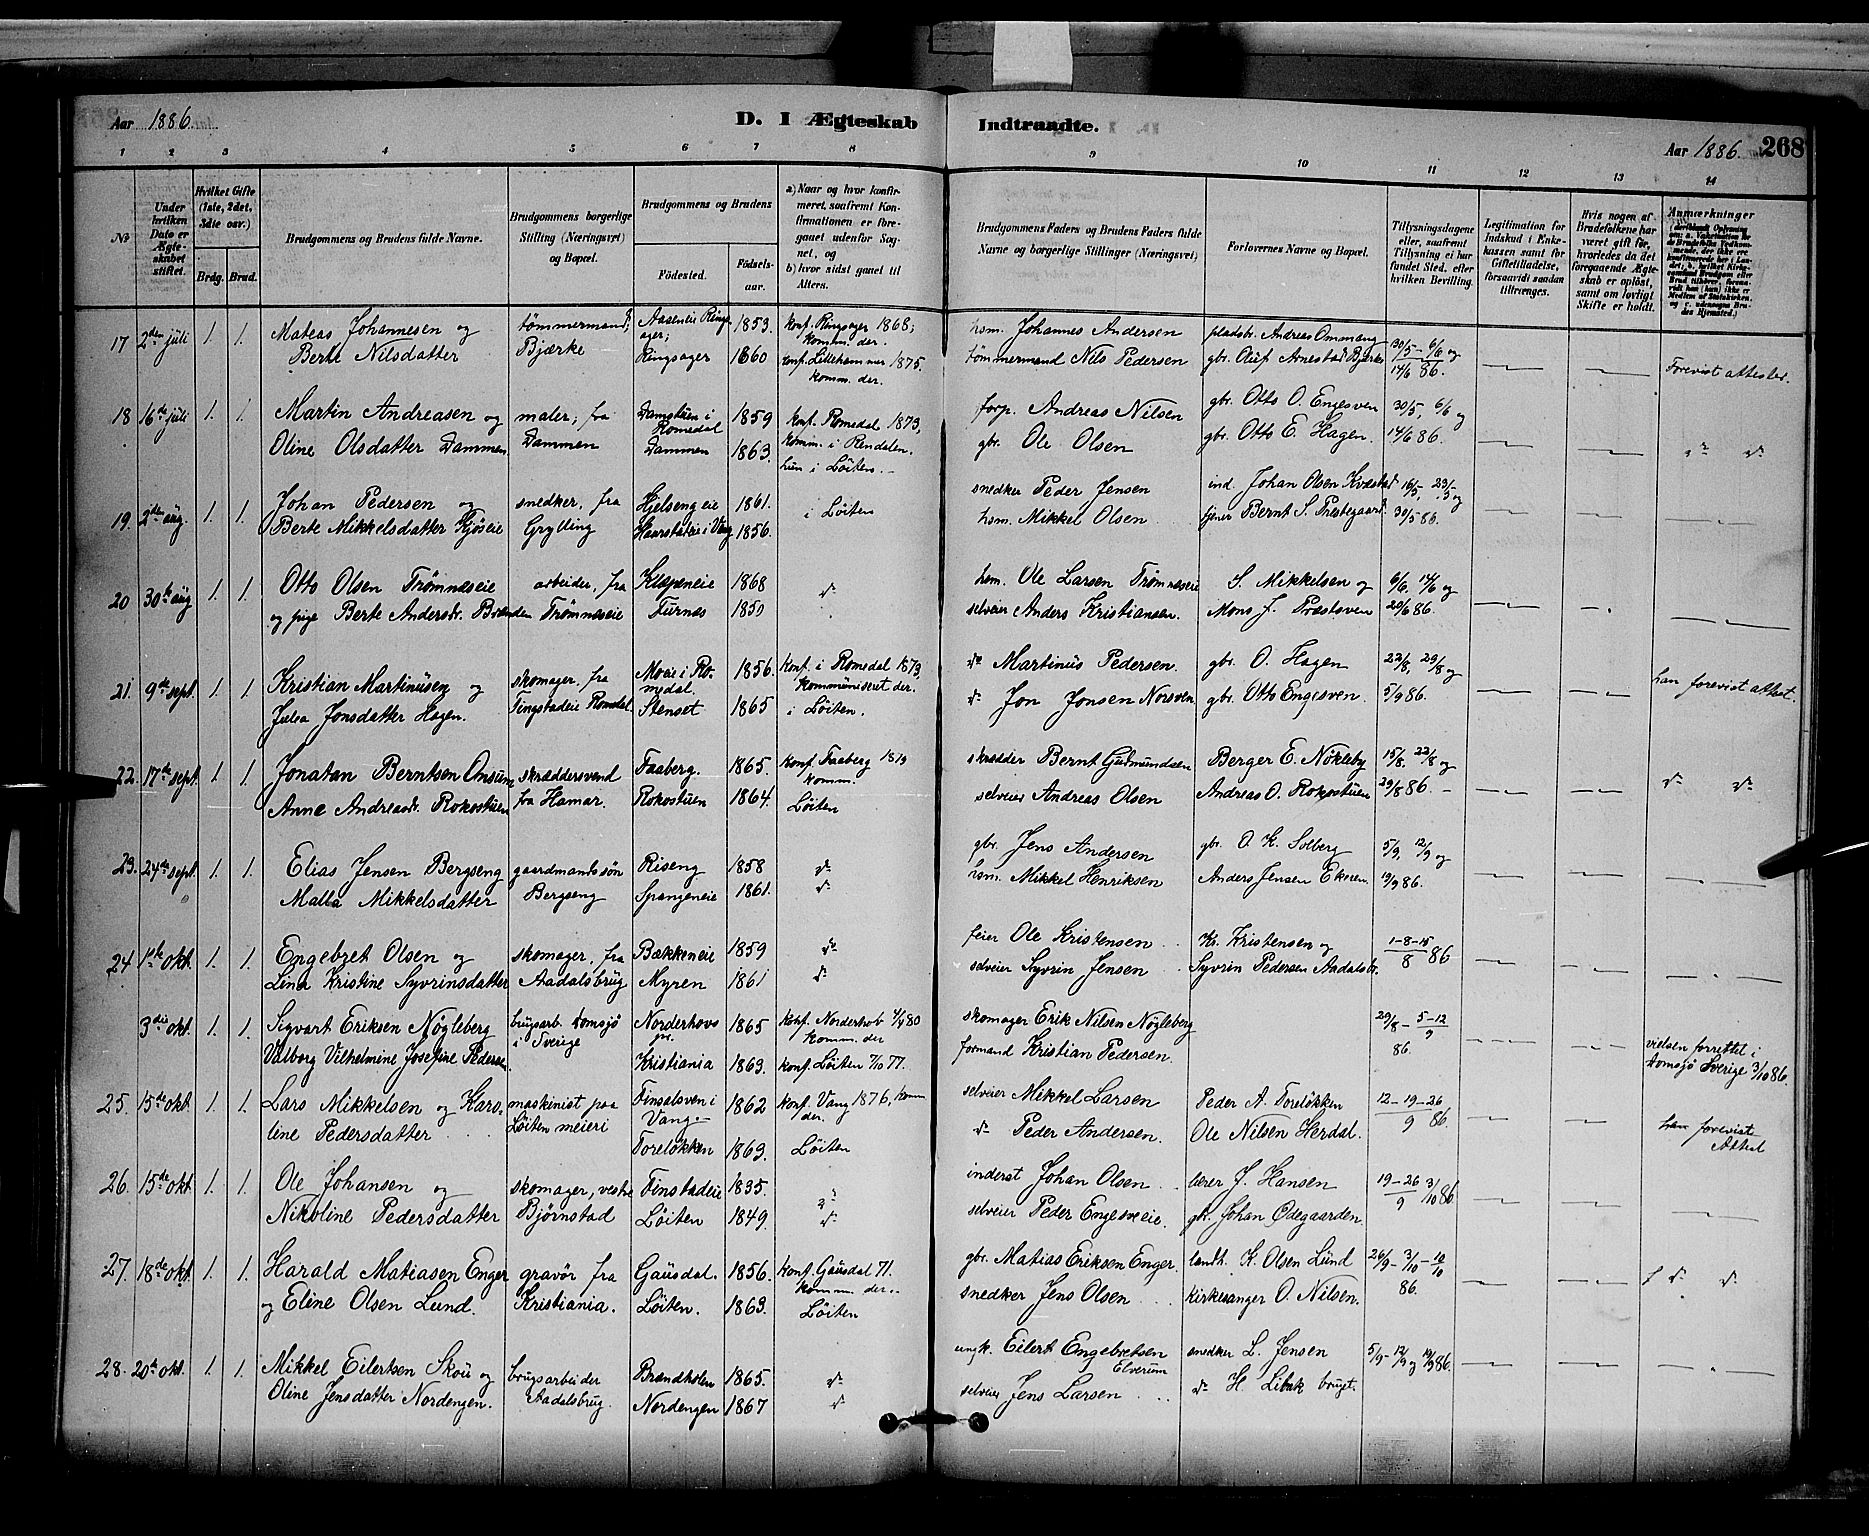 Aar 1886.
D. I Ægteskab Indtraadte.
Aar 1886. 268
1 2 3 4 5 6 7 8 9 10 11 12 13 14
No
Under hvilken Dato er Ægteskabet stiftet.
Hvilket Gifte (1ste, 2det, 3die osv.)
Brdg. Brud.
Brudgommens og Brudens fulde Navne.
Brudgommens borgerlige Stilling (Næringsvei) og Bopæl.
Brudgommens og Brudens
Fødested. Fødselsaar.
a) Naar og hvor konfirmeret, saafremt Konfirmationen er foregaaet udenfor Sognet, og
b) hvor sidst gaaet til Alters.
Brudgommens Faders og Brudens Faders fulde Navne og borgerlige Stillinger (Næringsvei)
Forlovernes Navne og Bopæl.
Tillysningsdagene eller, saafremt Tillysning ei har fundet Sted, efter hvilken Bevilling.
Legitimation for Indskud i Enkekassen samt for Giftetilladelse, forsaavidt saadan tiltrænges.
Hvis nogen af Brudefolkene har været gift før, hvorledes da det foregaaende Ægteskab er opløst, samt om lovligt Skifte er holdt.
Anmærkninger
17 2den juli 1. 1. Mateas Johannesen og tømmermand, Aaseneie Ringsager; 1853. konf. Ringsager 1868; komm. der. hsm. Johannes Andersen pladsbr. Andreas Ommang 30/5 - 6/6 og
Berte Nilsdatter Bjærke Ringsager 1860 konf. Lillehammer 1875. komm. der. tømmermand Nils Pedersen gbr. Oluf Arnestad Bjerke 14/6 86. Forevist attester.
18 16de juli 1. 1. Martin Andreasen og maler, fra Damstuen i Romedal 1859 konf. Romedal 1873, forp. Andreas Nilsen gbr. Otto O. Engesven 30/5, 6/6 og
Oline Olsdatter Dammen Dammen Dammen 1863. komm. i Rendalen. hun i Løiten. gbr. Ole Olsen gbr. Otto E. Hagen. 14/6 86.
19. 2den aug. 1. 1. Johan Pedersen og snedker, fra Hjelseng eie 1861. i Løiten snedker Peder Jensen ind. Johan Olsen Kvæstad 16/5, 23/5 og
Berte Mikkelsdatter Gjøseie Grylling Haarstadeie i Vang 1856. hsm. Mikkel Olsen tjener Bernt S. Prestegaard. 30/5 86.
20 30te aug 1. 1. Otto Olsen Trømnæseie arbeider, fra Klæpeneie 1868 hsm. Ole Larsen Trømnæseie S. Mikkelsen og 6/6. 14/6 og
og pige Berte Andersdr. Brænden Trømnæseie Furnæs 1850 selveier Anders Kristiansen. Mons J. Præstsven 20/6 86.
21. 9de sept. 1. 1. Kristian Martinusen og skomager, fra Moeie i Romedal. 1856. konf. i Romedal 1873, kommuniseret der. Martinus Pedersen. gbr. O. Hagen 22/8, 29/8 og han forevist attest.
Julea Jonsdatter Hagen. Tingstadeie Romedal Stenset 1865 i Løiten. Jon Jonsen Norsven gbr. Otto Engesven. 5/9 86.
22. 17de sept. 1. 1. Jonatan Berntsen Onsum skræddersvend Faaberg. 1865. konf. Faaberg 1879 komm. skredder Bernt Gudmundsen Berger E. Nøkleby 15/8. 22/8 og
Anne Andreasdr. Rokostuen fra Hamar. Rokostuen 1864. Løiten selveier Andreas Olsen Andreas O. Rokostuen 29/8 86.
23. 24de sept. 1. 1. Elias Jensen Bergseng gaardmandssøn Riseng 1858 gbr. Jens Andersen gbr. O. K. Solberg 5/9, 12/9 og
Malla Mikkelsdatter Bergseng Spangeneie 1861. hsm. Mikkel Henriksen Anders Jensen Ekeren 19/9 86.
24. 1ste okt. 1. 1. Engebret Olsen og skomager, fra Bækkeneie 1859 feier Ole Kristensen Kr. Kristensen og 1-8-15/8 86
Lina Kristine Syvrinsdatter Aadalsbrug Myren 1861 selveier Syvrin Jensen Syvrin Pedersen Aadalsbr.
3die okt. 1. 1. Sigvart Eriksen Nøgleberg brugsarb. Domsjø i Sverige Norderhovs pr. 1865 konf. Norderhov 4/4 80 komm. der skomager Erik Nilsen Nøgleberg 29/8 - 5-12/9 86.
Valborg Vilhelmine Josefine Pedersen. Kristiania 1863. konf. Løiten 7/10 77. formand Kristian Pedersen. vielsen forrettet i Domsjø Sverige 3/10 86.
25. 15de okt. 1. 1. Lars Mikkelsen og Karoline maskinist paa Finsalsven i Vang 1862 konf. Vang 1876, komm der. selveier Mikkel Larsen Peder A. Toreløkken 12-19-26/9 86.
Pedersdatter Løiten meieri Toreløkken 1863. Løiten Peder Andersen. Ole Nilsen Herdal. han forevist Attest
26. 15de okt. 1. 1. Ole Johansen og skomager, vestre Finstadeie 1835. inderst Johan Olsen lærer J. Hansen 19-26/9 3/10 86
Nikoline Pedersdatter Bjørnstad Løiten 1849. selveier Peder Engesveeie. gbr. Johan Ødegaarden.
27. 18de okt 1. 1. Harald Matiasen Enger gravør fra Gausdal. 1856. konf. Gausdal 71. komm. der. gbr. Matias Eriksen Enger. landh. K. Olsen Lund 26/9 - 3/10 - 10/10
og Eline Olsen Lund. Kristiania. Løiten. 1863. Løiten snedker Jens Olsen kirkesanger O. Nilsen. 86.
28. 20de okt. 1. 1. Mikkel Eilertsen Skou og brugsarbeider Brændholen 1865. ungk. Eilert Engebretsen Elverum snedker L. Jensen 5/9 - 12/9 og 19/9 86.
Oline Jensdatter Nordengen. Aadalsbrug. Nordengen 1867 selveier Jens Larsen H. Libak brugt.